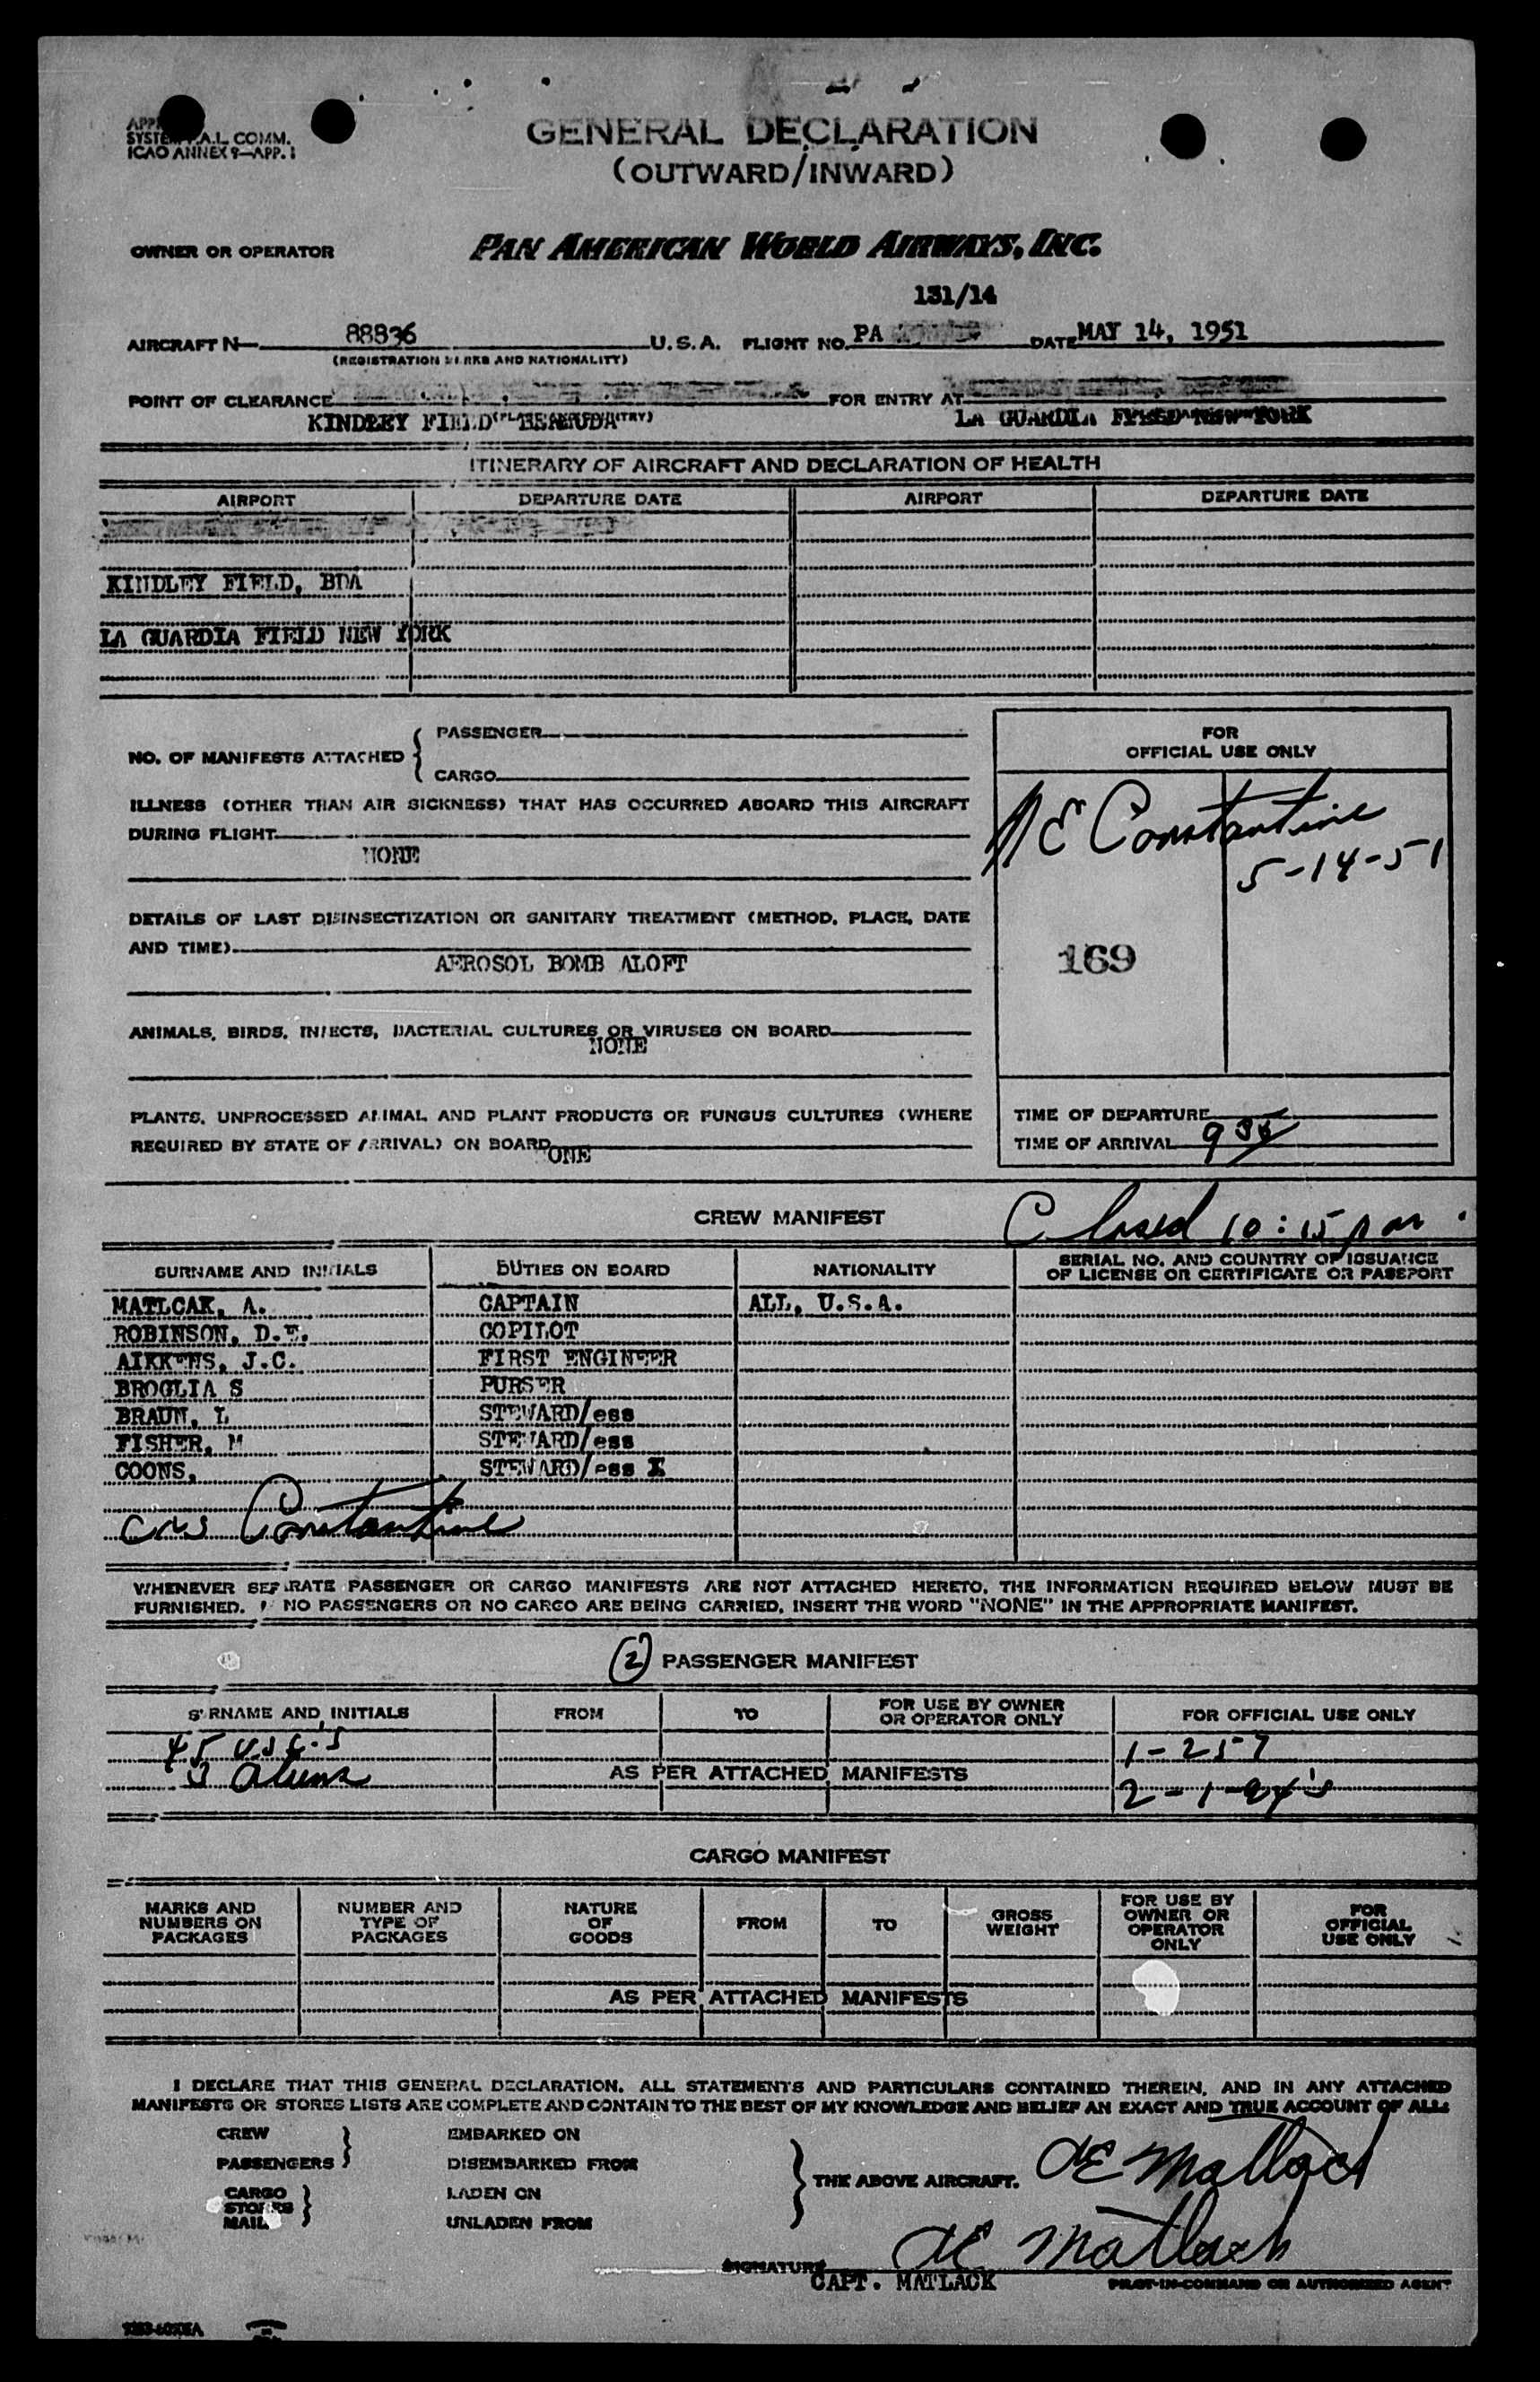 SYSTEM P.A.L. COMM.
ICAO ANNEX 9—APP. 1
GENERAL DECLARATION
(OUTWARD/INWARD)
OWNER OR OPERATOR PAN AMERICAN WORLD AIRWAYS, INC.
131/14
AIRCRAFT N— 88836 U.S.A. FLIGHT NO. PA DATE MAY 14, 1951
(REGISTRATION MARKS AND NATIONALITY)
POINT OF CLEARANCE FOR ENTRY AT
KINDLEY FIELD BERMUDA LA GUARDIA FIELD NEW YORK
ITINERARY OF AIRCRAFT AND DECLARATION OF HEALTH
AIRPORT DEPARTURE DATE AIRPORT DEPARTURE DATE
KINDLEY FIELD, BDA
LA GUARDIA FIELD NEW YORK
NO. OF MANIFESTS ATTACHED { PASSENGER
CARGO
FOR
OFFICIAL USE ONLY
ILLNESS (OTHER THAN AIR SICKNESS) THAT HAS OCCURRED ABOARD THIS AIRCRAFT
DURING FLIGHT
NONE
Constantine
5-14-51
DETAILS OF LAST DISINSECTIZATION OR SANITARY TREATMENT (METHOD, PLACE, DATE
AND TIME)
AEROSOL BOMB ALOFT
169
ANIMALS, BIRDS, INSECTS, BACTERIAL CULTURES OR VIRUSES ON BOARD
NONE
PLANTS, UNPROCESSED ANIMAL AND PLANT PRODUCTS OR FUNGUS CULTURES (WHERE
REQUIRED BY STATE OF ARRIVAL) ON BOARD
ONE
TIME OF DEPARTURE
TIME OF ARRIVAL
CREW MANIFEST
Closed 10:15 pm.
SURNAME AND INITIALS DUTIES ON BOARD NATIONALITY SERIAL NO. AND COUNTRY OF ISSUANCE
OF LICENSE OR CERTIFICATE OR PASSPORT
MATLCAK, A. CAPTAIN ALL, U.S.A.
ROBINSON, D.E. COPILOT
AIKKENS, J.C. FIRST ENGINEER
BROGLIA S PURSER
BRAUN, L STEWARD/ess
FISHER, M STEWARD/ess
COONS, STEWARD/ess X
Constantine
WHENEVER SEPARATE PASSENGER OR CARGO MANIFESTS ARE NOT ATTACHED HERETO, THE INFORMATION REQUIRED BELOW MUST BE
FURNISHED. IF NO PASSENGERS OR NO CARGO ARE BEING CARRIED, INSERT THE WORD "NONE" IN THE APPROPRIATE MANIFEST.
(2) PASSENGER MANIFEST
SURNAME AND INITIALS FROM TO FOR USE BY OWNER
OR OPERATOR ONLY FOR OFFICIAL USE ONLY
45 USC'S 1-257
3 aliens AS PER ATTACHED MANIFESTS
CARGO MANIFEST
MARKS AND
NUMBERS ON
PACKAGES NUMBER AND
TYPE OF
PACKAGES NATURE
OF
GOODS FROM TO GROSS
WEIGHT FOR USE BY
OWNER OR
OPERATOR
ONLY FOR
OFFICIAL
USE ONLY
AS PER ATTACHED MANIFESTS
I DECLARE THAT THIS GENERAL DECLARATION, ALL STATEMENTS AND PARTICULARS CONTAINED THEREIN, AND IN ANY ATTACHED
MANIFESTS OR STORES LISTS ARE COMPLETE AND CONTAIN TO THE BEST OF MY KNOWLEDGE AND BELIEF AN EXACT AND TRUE ACCOUNT OF ALL:
CREW EMBARKED ON
PASSENGERS DISEMBARKED FROM
THE ABOVE AIRCRAFT. AE Matlack
CARGO LADEN ON
STORES
MAIL UNLADEN FROM
SIGNATURE AE Matlack
CAPT. MATLACK PILOT-IN-COMMAND OR AUTHORIZED AGENT